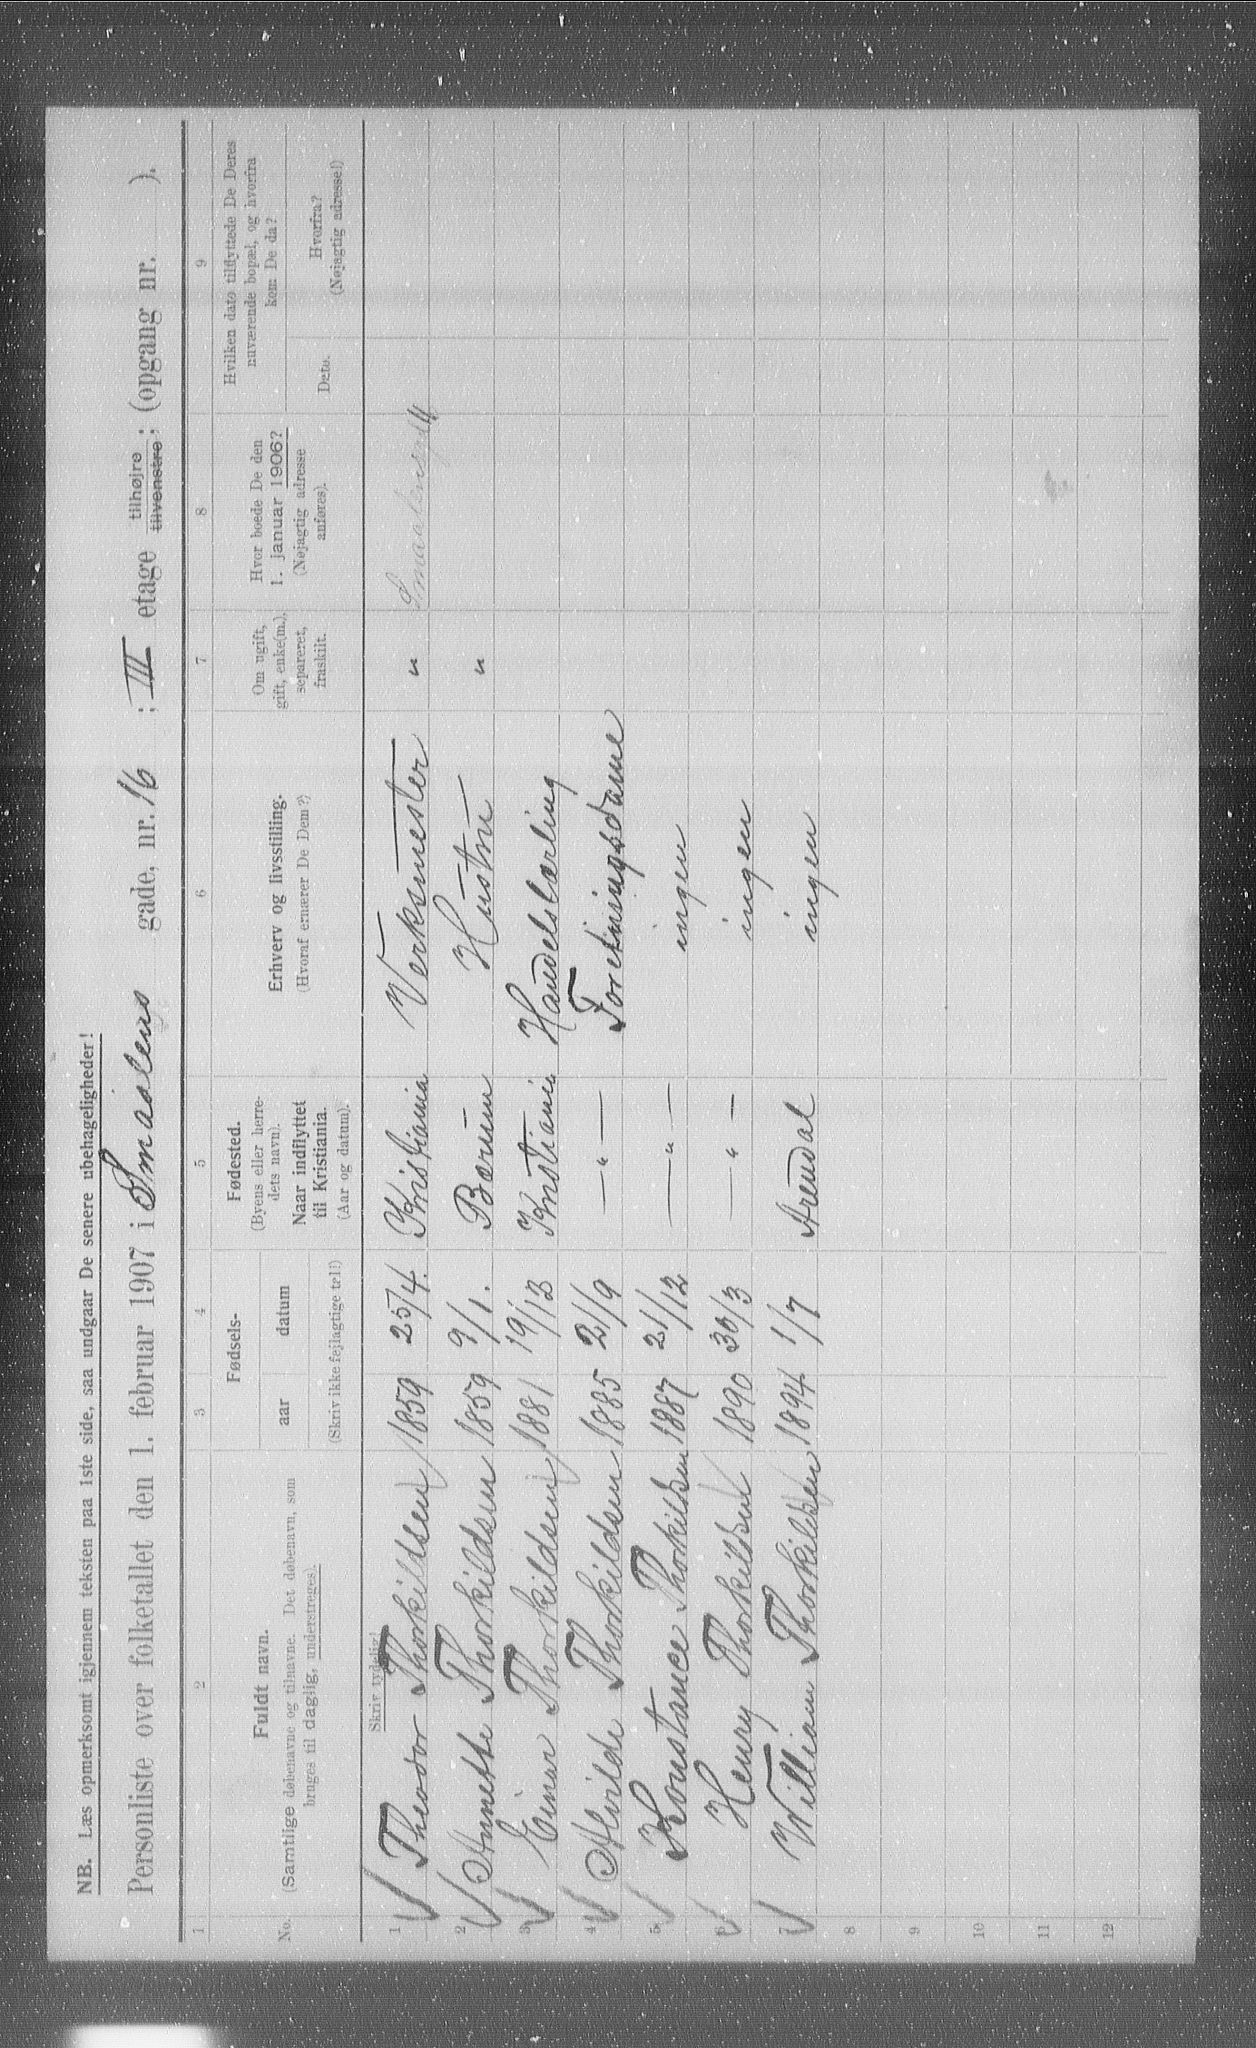 NB. Læs opmerksomt igjennem teksten paa 1ste side, saa undgaar De senere ubehageligheder!
Personliste over folketallet den 1. februar 1907 i Smaalens gade, nr. 16 ; III etage tilhøjre tilvenstre; (opgang nr. ).
1 2 3 4 5 6 7 8 9
No. Fuldt navn. (Samtlige døbenavne og tilnavne. Det døbenavn, som bruges til daglig, understreges). Fødsels- aar datum (Skriv ikke fejlagtige tal!) Fødested. (Byens eller herredets navn). Naar indflyttet til Kristiania. (Aar og datum). Erhverv og livsstilling. (Hvoraf ernærer De Dem?) Om ugift, gift, enke(m.), separeret, fraskilt. Hvor boede De den 1. januar 1906? (Nøjagtig adresse anføres). Hvilken dato tilflyttede De Deres nuværende bopæl, og hvorfra kom De da? Dato. Hvorfra? (Nøjagtig adresse!)
Skriv tydelig!
1 Theodor Thorkildsen 1859 25/4. Kristiania Verksmester " Smaalensgd
2 Annette Thorkildsen 1859 9/1. Bærum Hustru "
3 Einar Thorkildsen 1881 19/12 Kristiania Handelslærling
4 Alvilde Thorkildsen 1885 21/9 — " — Foretningsdame
5 Konstance Thorkildsen 1887 21/12 — " — ingen
6 Henry Thorkildsen 1890 30/3 — " — ingen
7 William Thorkildsen 1894 1/7 Arendal ingen
8
9
10
11
12